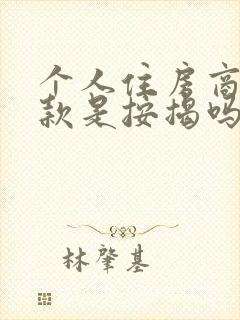 个人住房商
款是按揭吗
林肇基